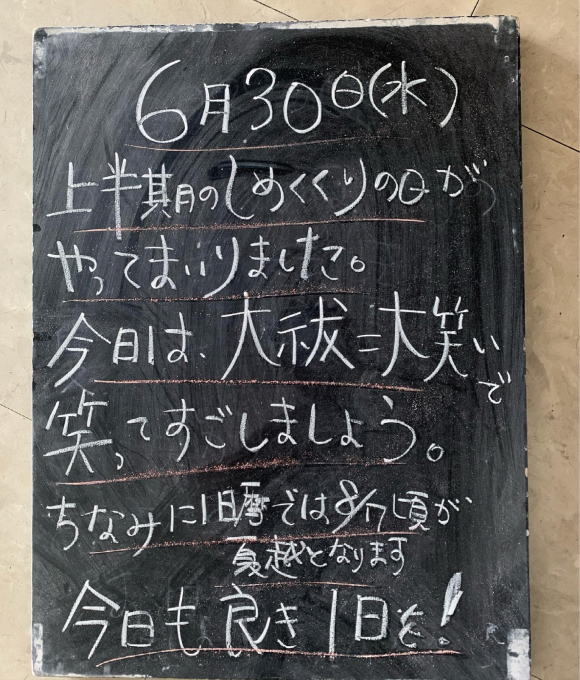 6月30日(水)
上半期のしめくくりの日が
やってまいりました。
今日は、大祓=大笑いで
笑ってすごしましょう。
ちなみに旧暦では8/7頃が
夏越となります
今日も良き1日を!